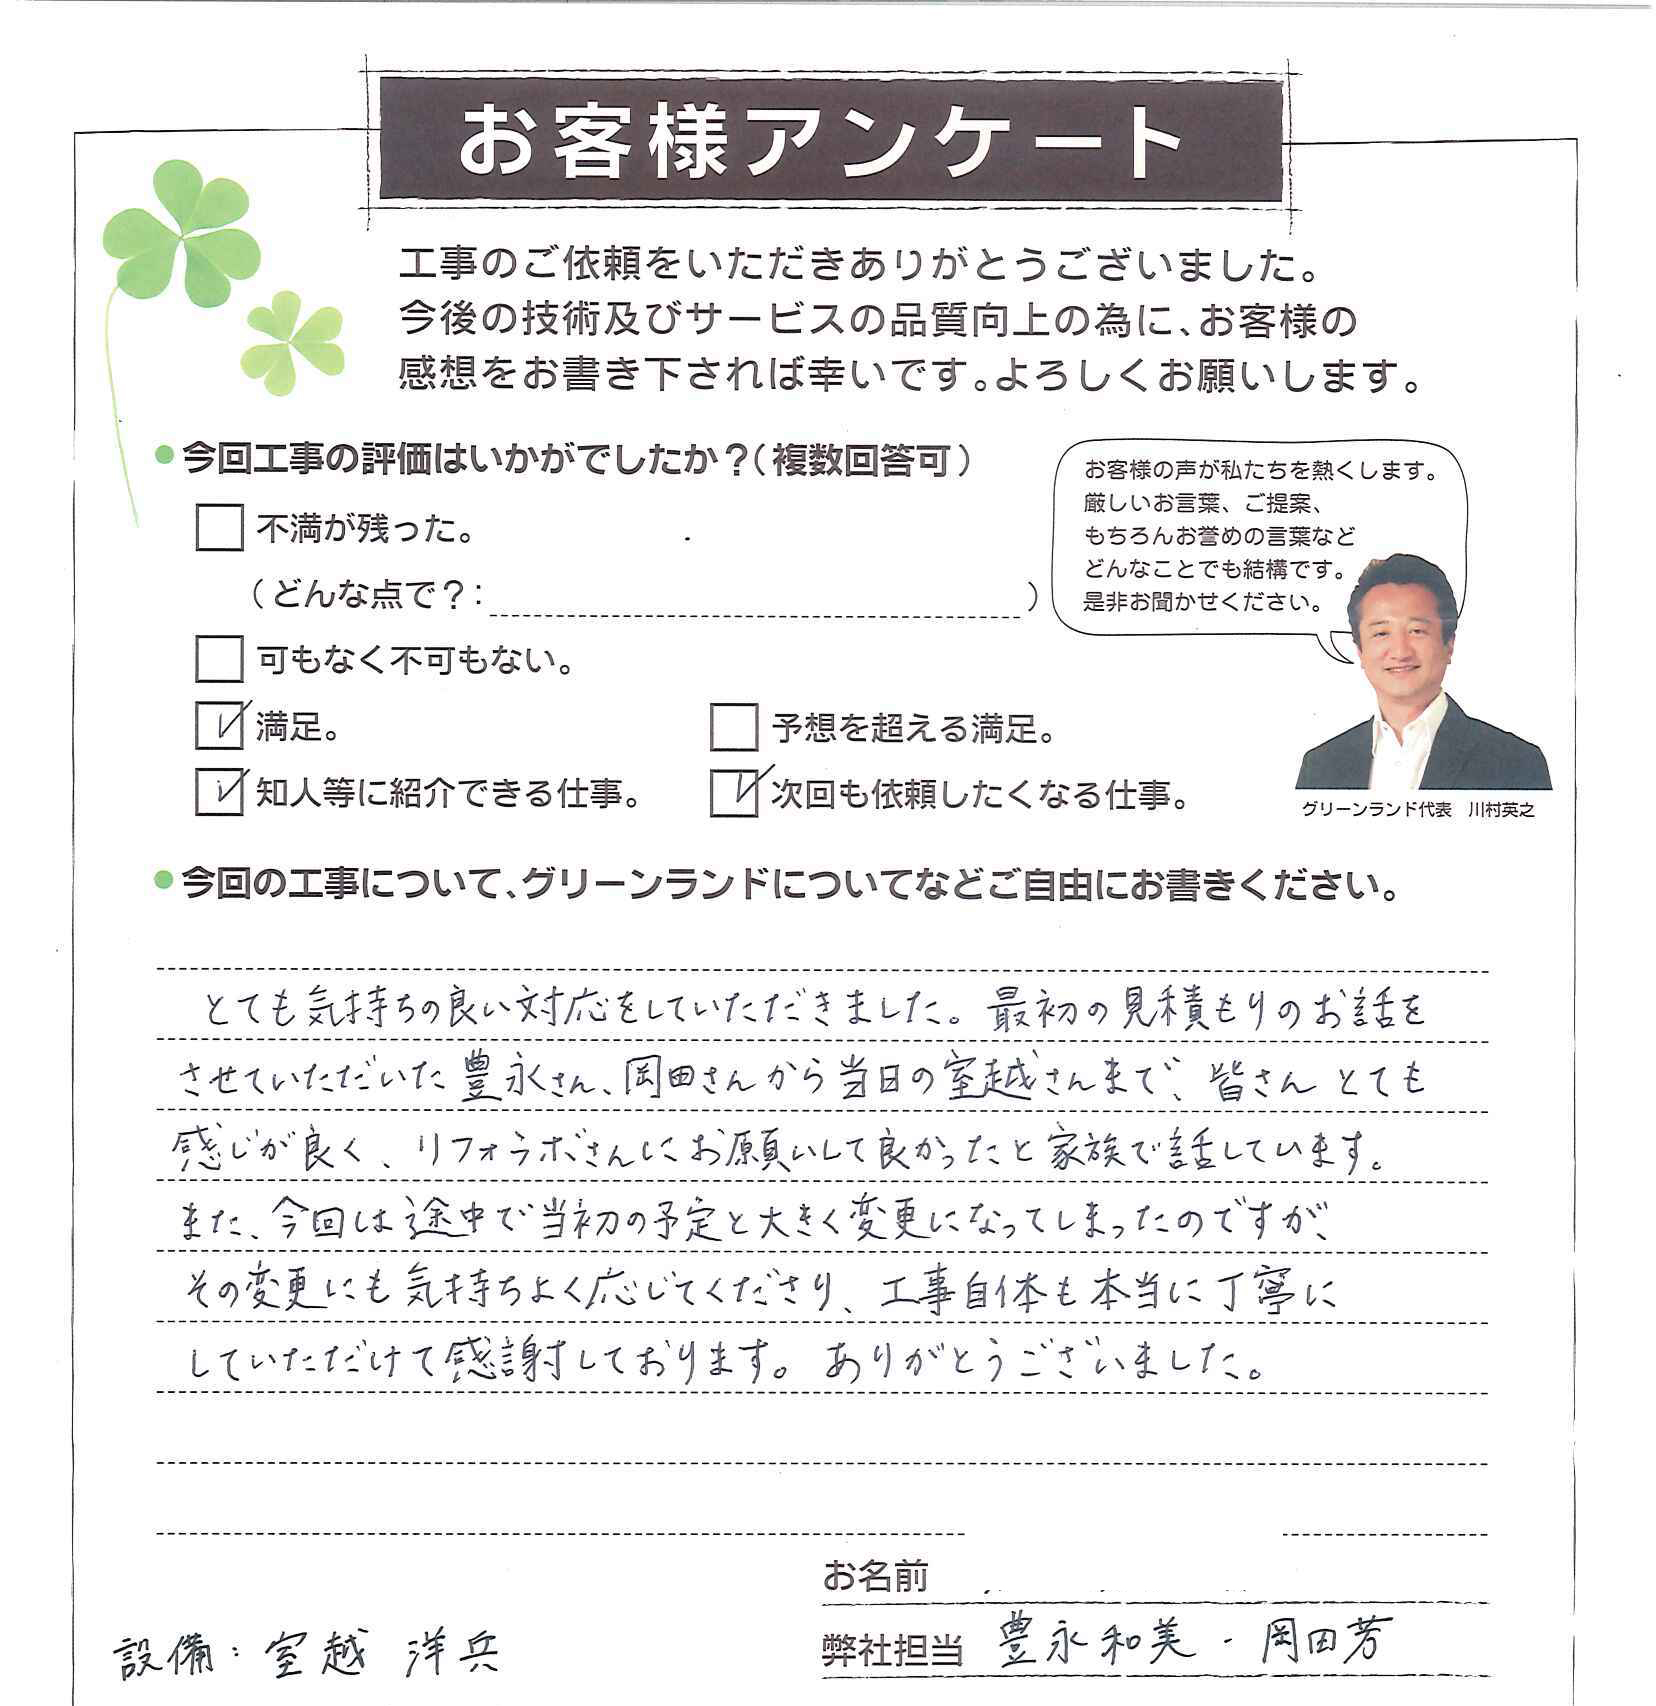 お客様アンケート
工事のご依頼をいただきありがとうございました。
今後の技術及びサービスの品質向上の為に、お客様の
感想をお書き下されば幸いです。よろしくお願いします。
●今回工事の評価はいかがでしたか？（複数回答可）
不満が残った。
（どんな点で？：　）
可もなく不可もない。
満足。
予想を超える満足。
知人等に紹介できる仕事。
次回も依頼したくなる仕事。
お客様の声が私たちを熱くします。
厳しいお言葉、ご提案、
もちろんお誉めの言葉など
どんなことでも結構です。
是非お聞かせください。
グリーンランド代表　川村英之
●今回の工事について、グリーンランドについてなどご自由にお書きください。
とても気持ちの良い対応をしていただだきました。最初の見積もりのお話を
させていただいた豊永さん、岡田さんから当日の室越さんまで、皆さんとても
感じが良く、リフォラボさんにお願いして良かったと家族で話しています。
また、今回は途中で当初の予定と大きく変更になってしまったのですが、
その変更にも気持ちよく応じてくださり、工事自体も本当に丁寧に
していただけて感謝しております。ありがとうございました。
お名前
弊社担当 豊永和美・岡田芳
設備：室越 洋兵